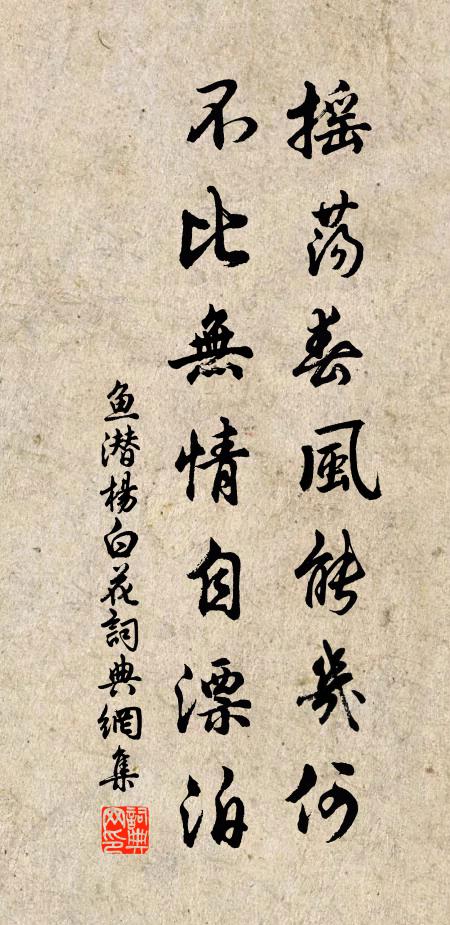 摇荡春風能幾何
不比無情自漂泊
魚潜楊白花詞典網集
詞典網印